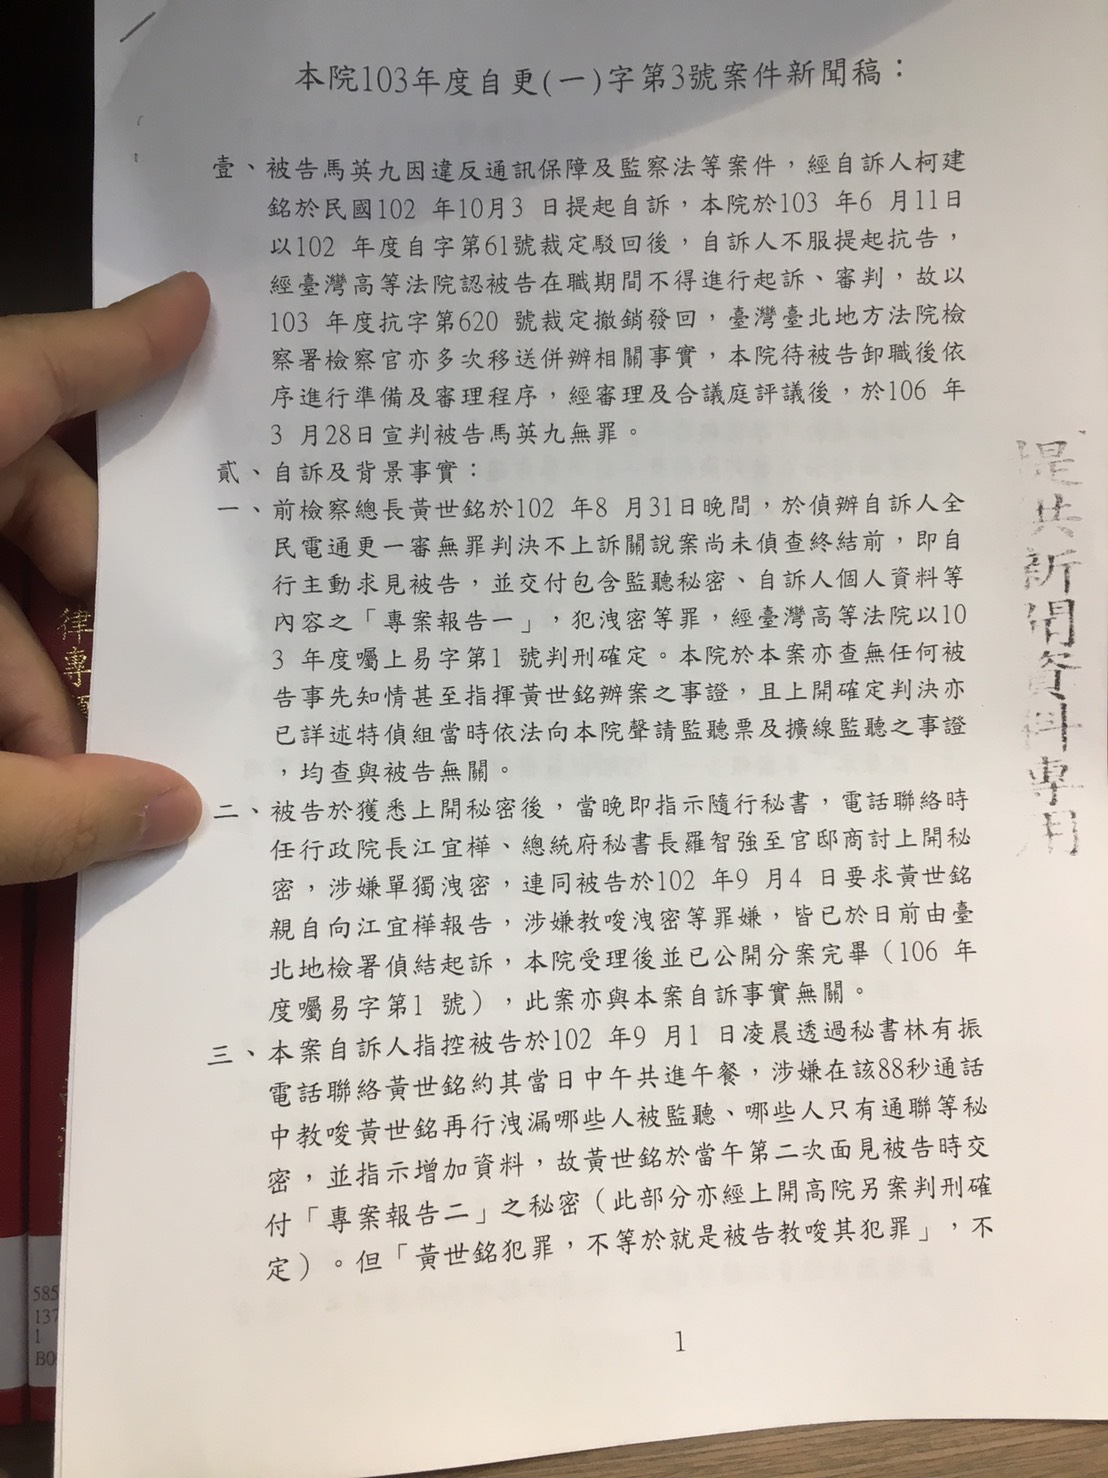 本院103年度自更(一)字第3號案件新聞稿：
壹、被告馬英九因違反通訊保障及監察法等案件，經自訴人柯建
銘於民國102 年10月3 日提起自訴，本院於103 年6 月11日
以102 年度自字第61號裁定駁回後，自訴人不服提起抗告，
經臺灣高等法院認被告在職期間不得進行起訴、審判，故以
103 年度抗字第620 號裁定撤銷發回，臺灣臺北地方法院檢
察署檢察官亦多次移送併辦相關事實，本院待被告卸職後依
序進行準備及審理程序，經審理及合議庭評議後，於106 年
3 月28日宣判被告馬英九無罪。
貳、自訴及背景事實：
一、前檢察總長黃世銘於102 年8 月31日晚間，於偵辦自訴人全
民電通更一審無罪判決不上訴關說案尚未偵查終結前，即自
行主動求見被告，並交付包含監聽秘密、自訴人個人資料等
內容之「專案報告一」，犯洩密等罪，經臺灣高等法院以10
3 年度囑上易字第1 號判刑確定。本院於本案亦查無任何被
告事先知情甚至指揮黃世銘辦案之事證，且上開確定判決亦
已詳述特偵組當時依法向本院聲請監聽票及擴線監聽之事證
，均查與被告無關。
二、被告於獲悉上開秘密後，當晚即指示隨行秘書，電話聯絡時
任行政院長江宜樺、總統府秘書長羅智強至官邸商討上開秘
密，涉嫌單獨洩密，連同被告於102 年9 月4 日要求黃世銘
親自向江宜樺報告，涉嫌教唆洩密等罪嫌，皆已於日前由臺
北地檢署偵結起訴，本院受理後並已公開分案完畢（106 年
度囑易字第1 號），此案亦與本案自訴事實無關。
三、本案自訴人指控被告於102 年9 月1 日凌晨透過秘書林有振
電話聯絡黃世銘約其當日中午共進午餐，涉嫌在該88秒通話
中教唆黃世銘再行洩漏哪些人被監聽、哪些人只有通聯等秘
密，並指示增加資料，故黃世銘於當午第二次面見被告時交
付「專案報告二」之秘密（此部分亦經上開高院另案判刑確
定）。但「黃世銘犯罪，不等於就是被告教唆其犯罪」，不
1
提供新聞資料專用
律專
585
137
1